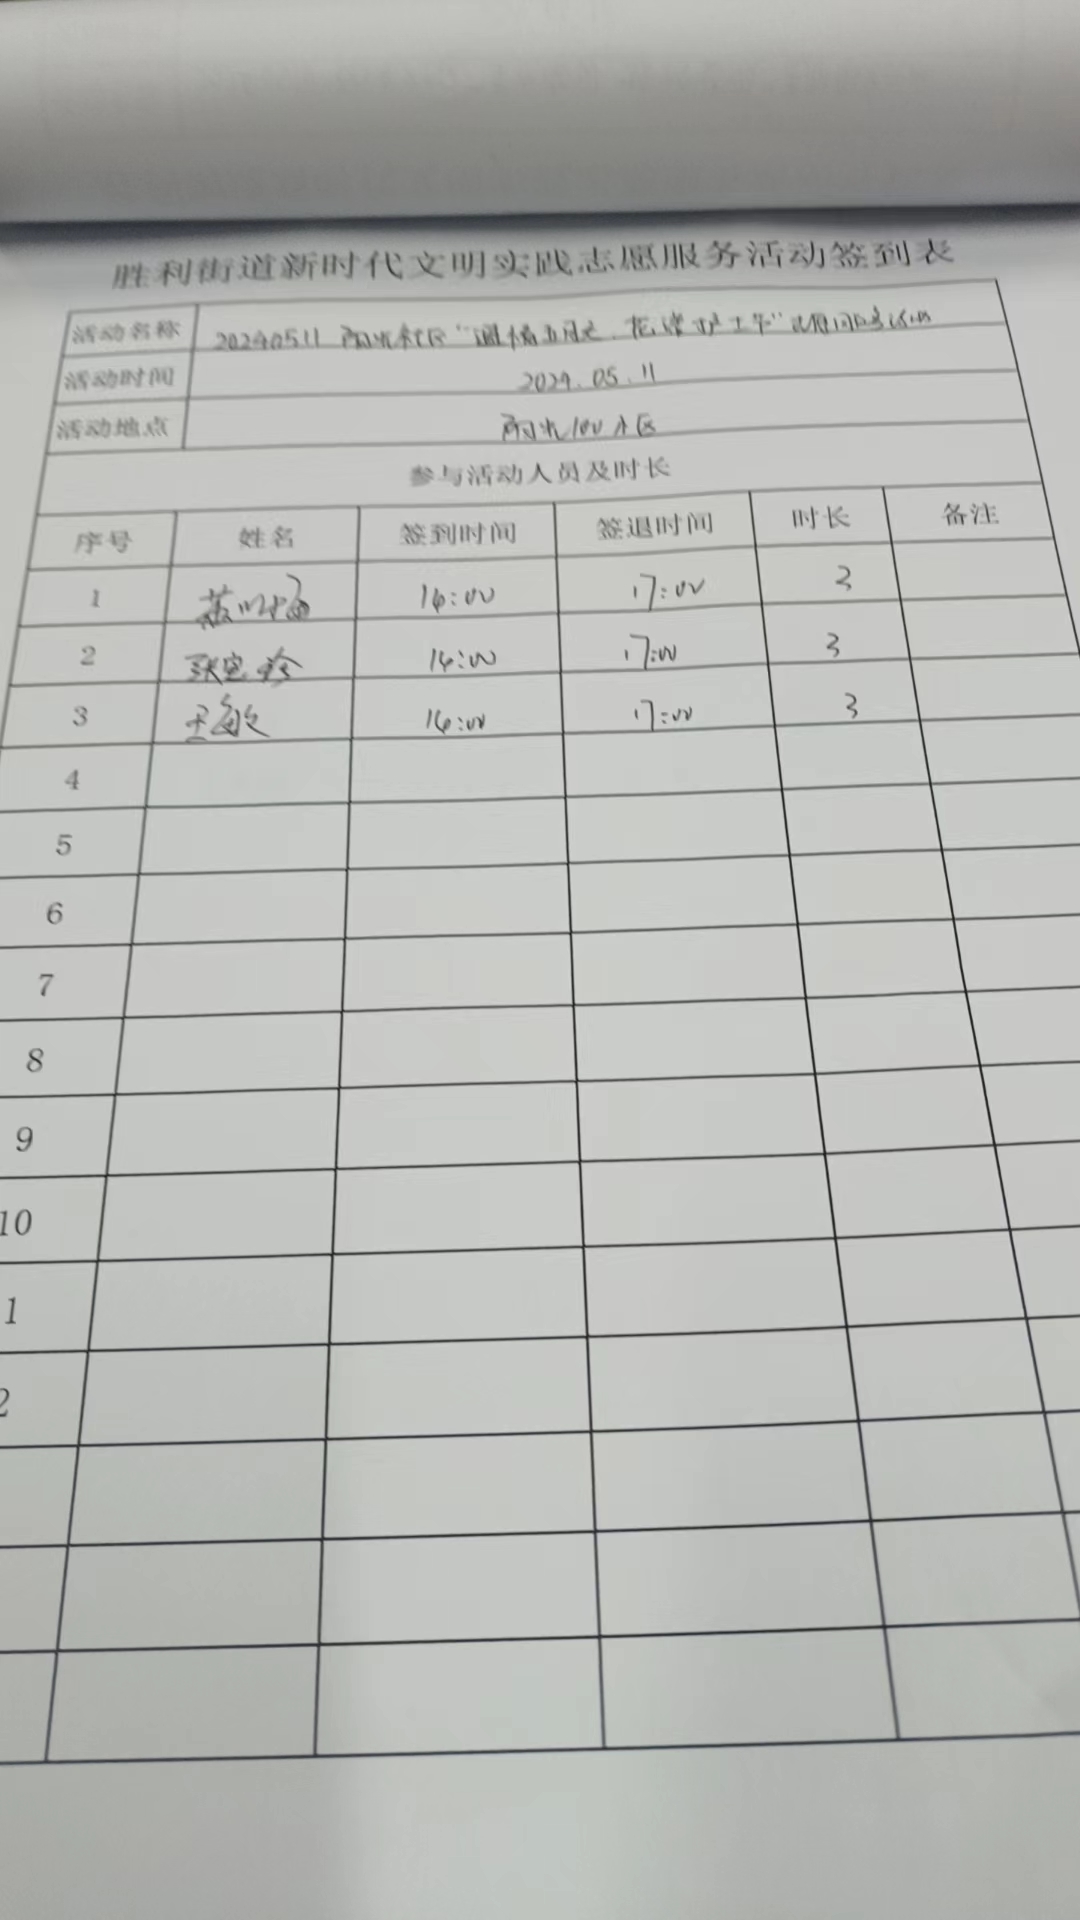 胜利街道新时代文明实践志愿服务活动签到表
活动名称 20240511 阳光社区"温情五月
活动时间 2024.05.11
活动地点 阳光100 A区
参与活动人员及时长
序号 姓名 签到时间 签退时间 时长 备注
1 14:00 17:00 3
2 张宝珍 14:00 17:00 3
3 王敏 14:00 17:00 3
4
5
6
7
8
9
10
1
2